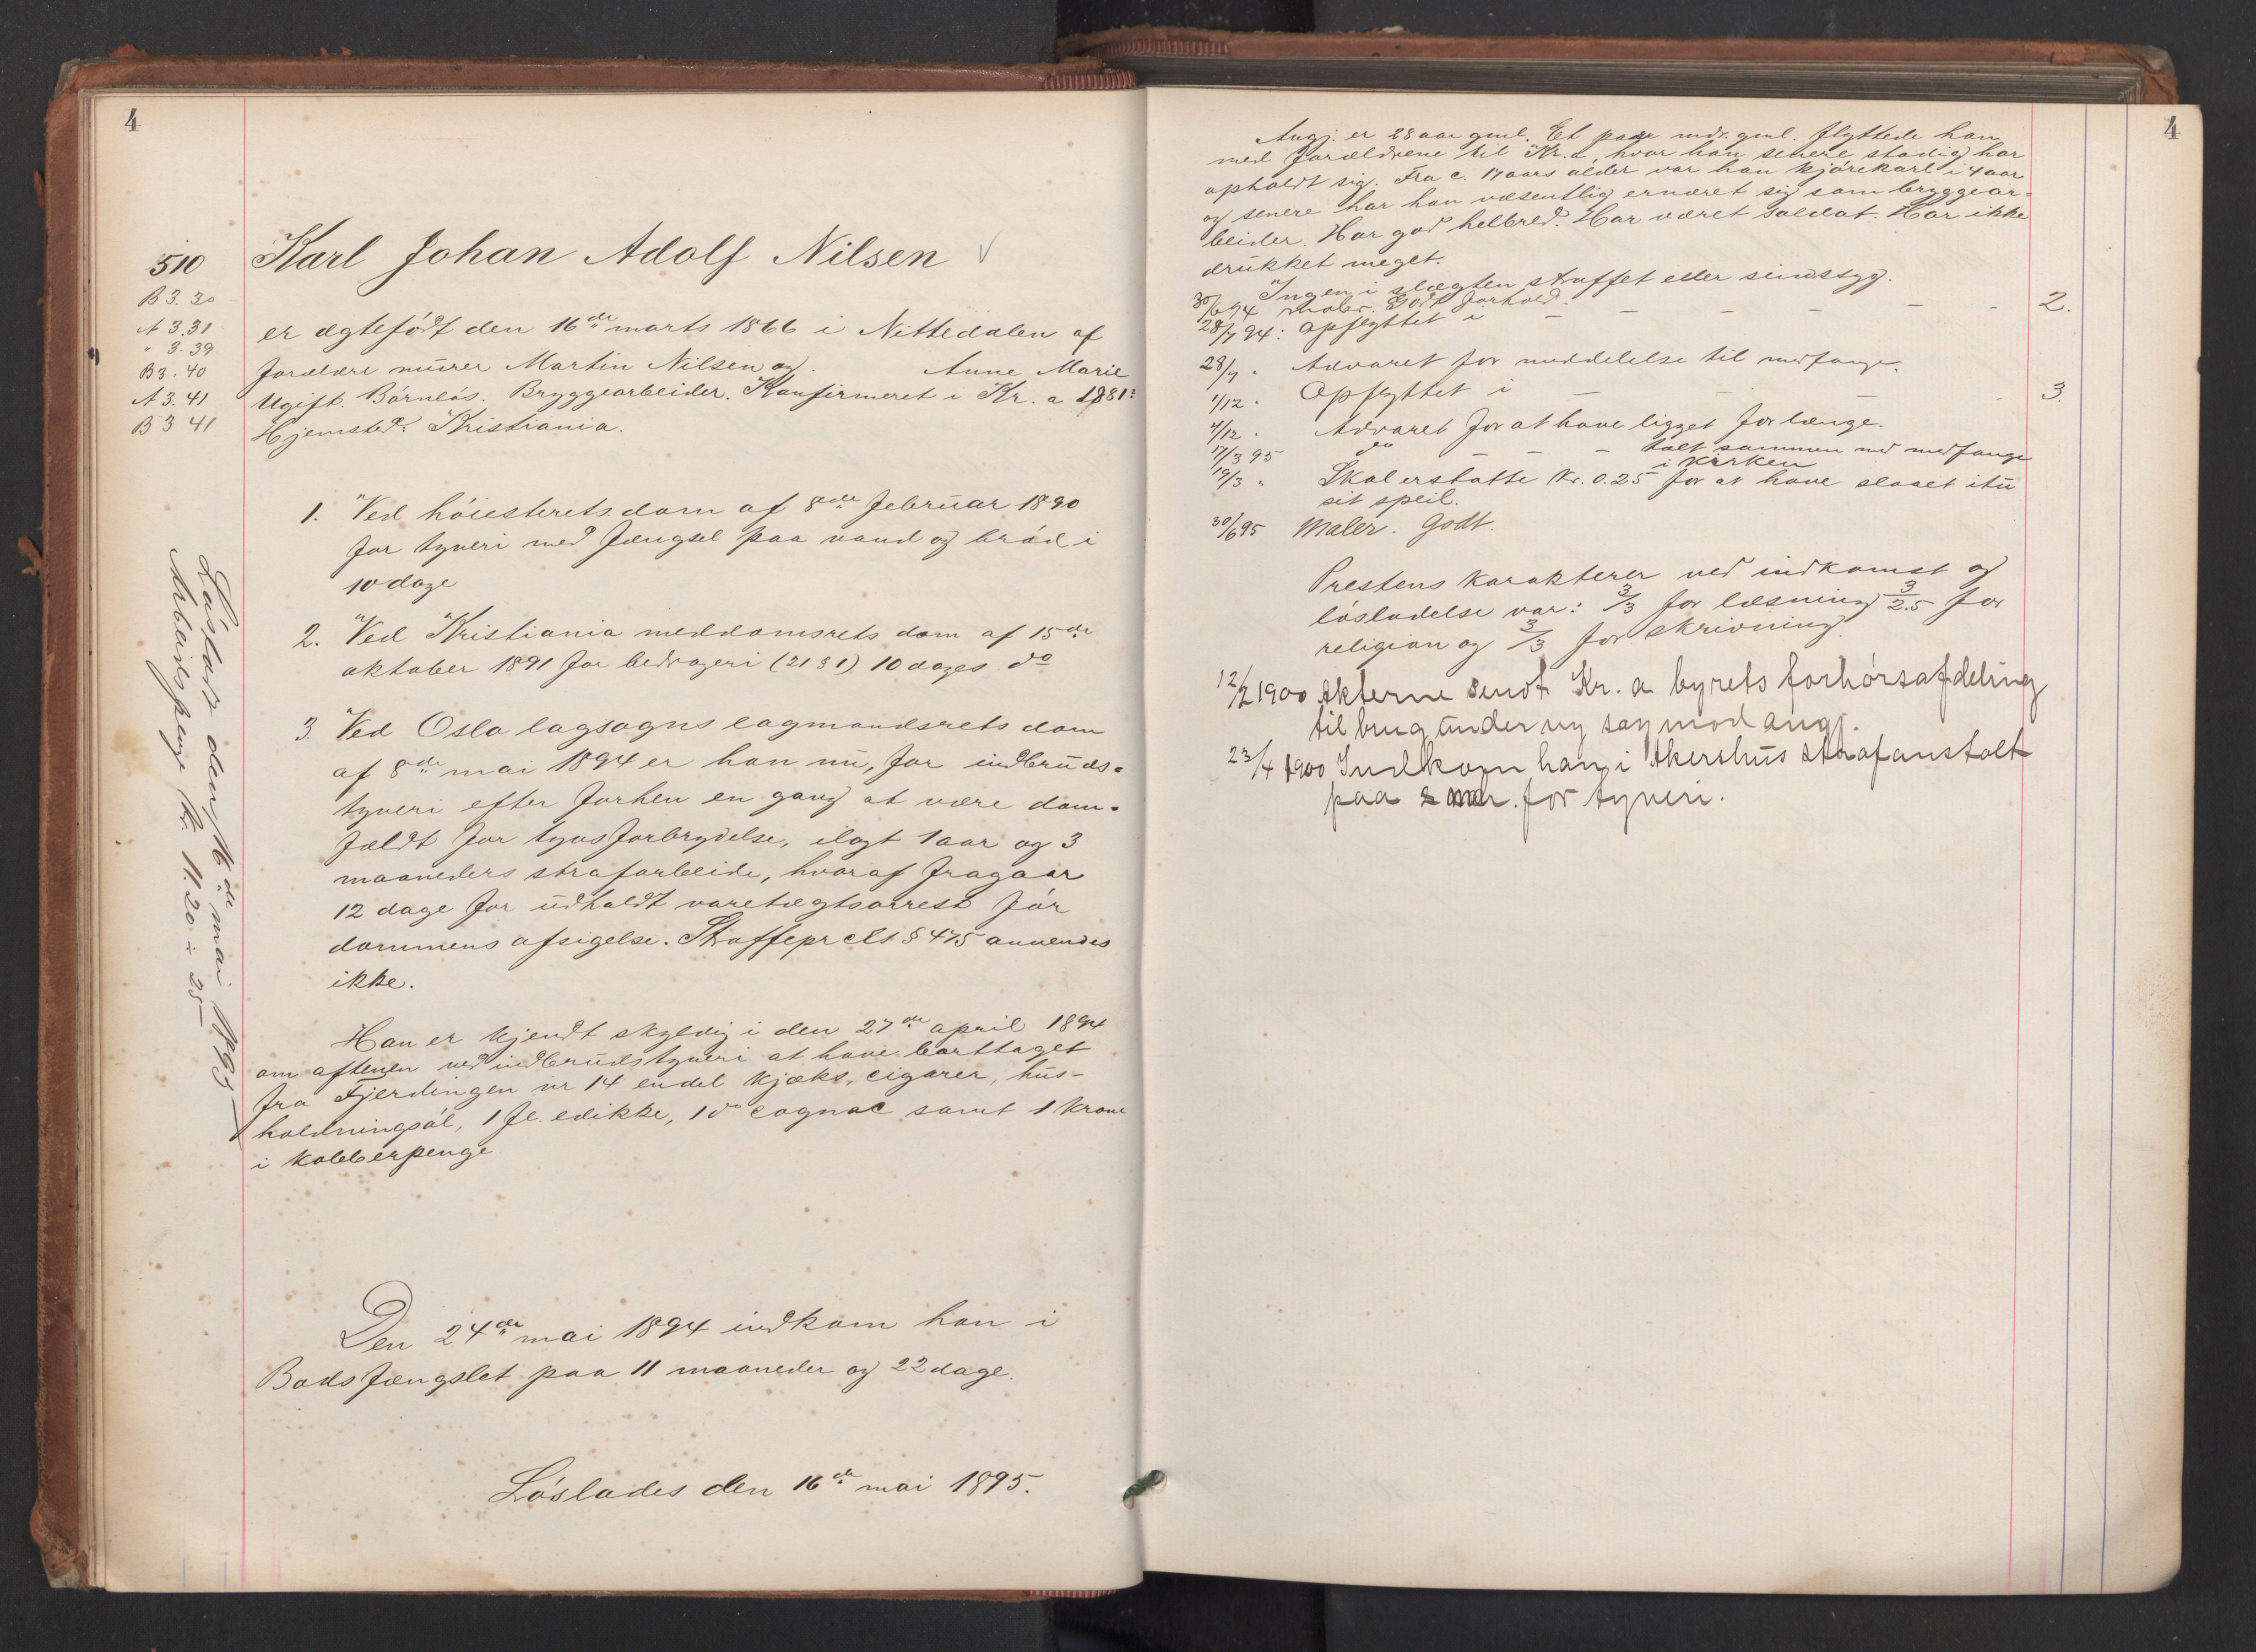 4
510
B 3. 30
A 3. 31
" 3. 39
B 3. 40
A 3. 41
B 3 41
Karl Johan Adolf Nilsen
er ægtefödt den 16de marts 1866 i Nittedalen af
forældre murer Martin Nilsen og Anne Marie
Ugift. Börnlös. Bryggearbeider. Konfirmeret i Kr. a 1881.
Hjemsted: Kristiania.
1. Ved höiesteretsdom af 8de februar 1890
for tyveri med fængsel paa vand og bröd i
10 dage
2. Ved Kristiania meddomsrets dom af 15de
oktober 1891 for bedrageri (21 § 1) 10 dages do
3. Ved Oslo lagsogns lagmandsrets dom
af 8de mai 1894 er han nu, for indbruds-
tyveri efter forhen en gang at være dom-
fældt for tyvsforbrydelse, ilagt 1 aar og 3
maaneders strafarbeide, hvoraf fragaar
12 dage for udholdt varetægtsarrest för
dommens afsigelse. Straffeprcls § 475 anvendes
ikke.
Han er kjendt skyldig i den 27de april 1894
om aftenen ved indbrudstyveri at have borttaget
fra Fjerdingen nr 14 endel kjæks, cigarer, hus-
holdningsöl, 1 fl. edikke, 1 do cognac samt 1 krone
i kobberpenge
Den 24de mai 1894 indkom han i
Bodsfængslet paa 11 maaneder og 22 dage.
Löslades den 16de mai 1895.
Löslades den 16de mai 1895
Arbeidspenge kr. 11.20 ÷ 25
4
Angj. er 28 aar gml. Et par mdr. gml. flyttede han
med forældrene til Kr.a, hvor han senere stadig har
opholdt sig. Fra c. 17 aars alder var han kjörekarl i 4 aar
og senere har han væsentlig ernæret sig som bryggear-
beider. Har god helbred. Har været soldat. Har ikke
drukket meget.
Ingen i slægten straffet eller sindssyg.
30/6 94 Maler. Godt forhold.
28/7 94: Opflyttet i - - - - - - 2.
28/9 " Advaret for meddelelse til medfange.
1/12 " Opflyttet i - - - 3.
4/12 " Advaret for at have ligget for længe.
17/3 95 do - - - talt sammen med medfange
i kirken
19/3 " Skal erstatte kr. 0.25 for at have slaaet itu
sit speil.
30/6 95 Maler. Godt.
Prestens karakterer ved indkomst og
lösladelse var: 3/3 for læsning 3/2.5 for
religion og 3/3 for skrivning.
12/2 1900 Akterne sendt Kr. a byrets forhörsafdeling
til brug under ny sag mod angj.
23/4 1900 Indkom han i Akershus strafanstalt
paa for tyveri.